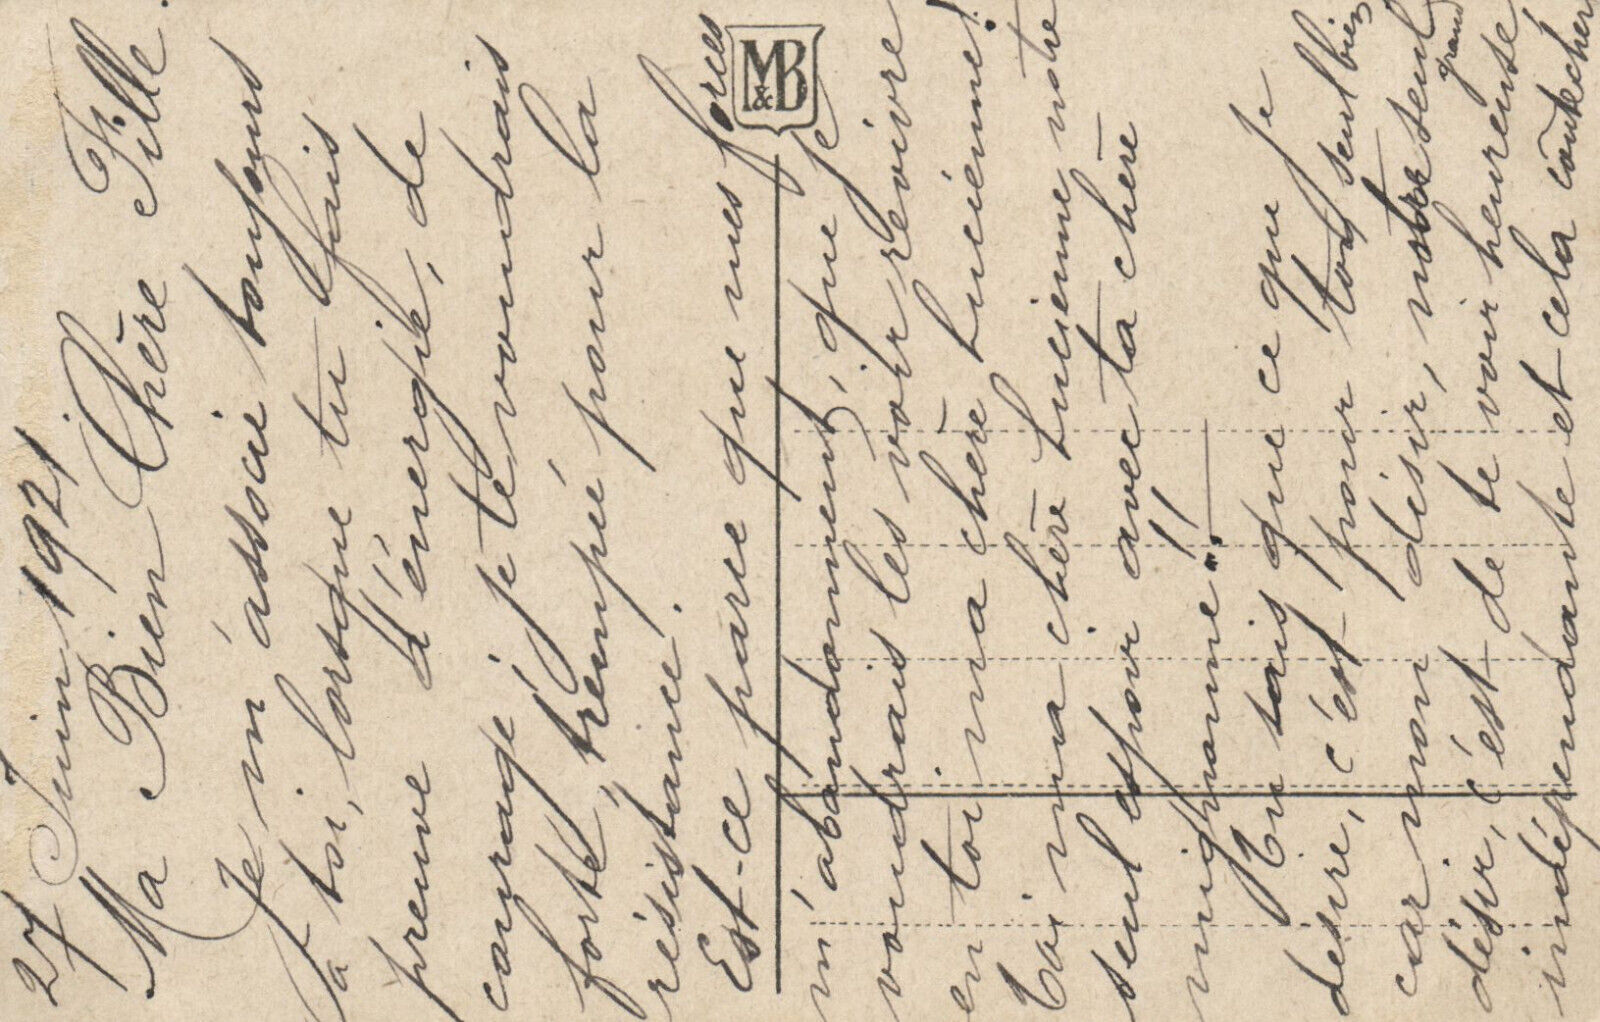 27 Juin 1921
Ma Bien Chère Fille.
Je m'associe toujours
à toi, lorsque tu fais
preuve d'énergie, de
courage je te voudrais
forte, trempée pour la
résistance.
Est-ce parce que mes forces
m'abandonnent, que je
voudrais les voir revivre
en toi ma chère Lucienne!
Toi ma chère Lucienne notre
seul espoir avec ta chère
mignonne!!!
Tu sais que ce que je
désire, c'est pour toi seul bien
car mon désir, notre seul grand
désir, c'est de te voir heureuse
indépendante et cela coûte cher
M&B